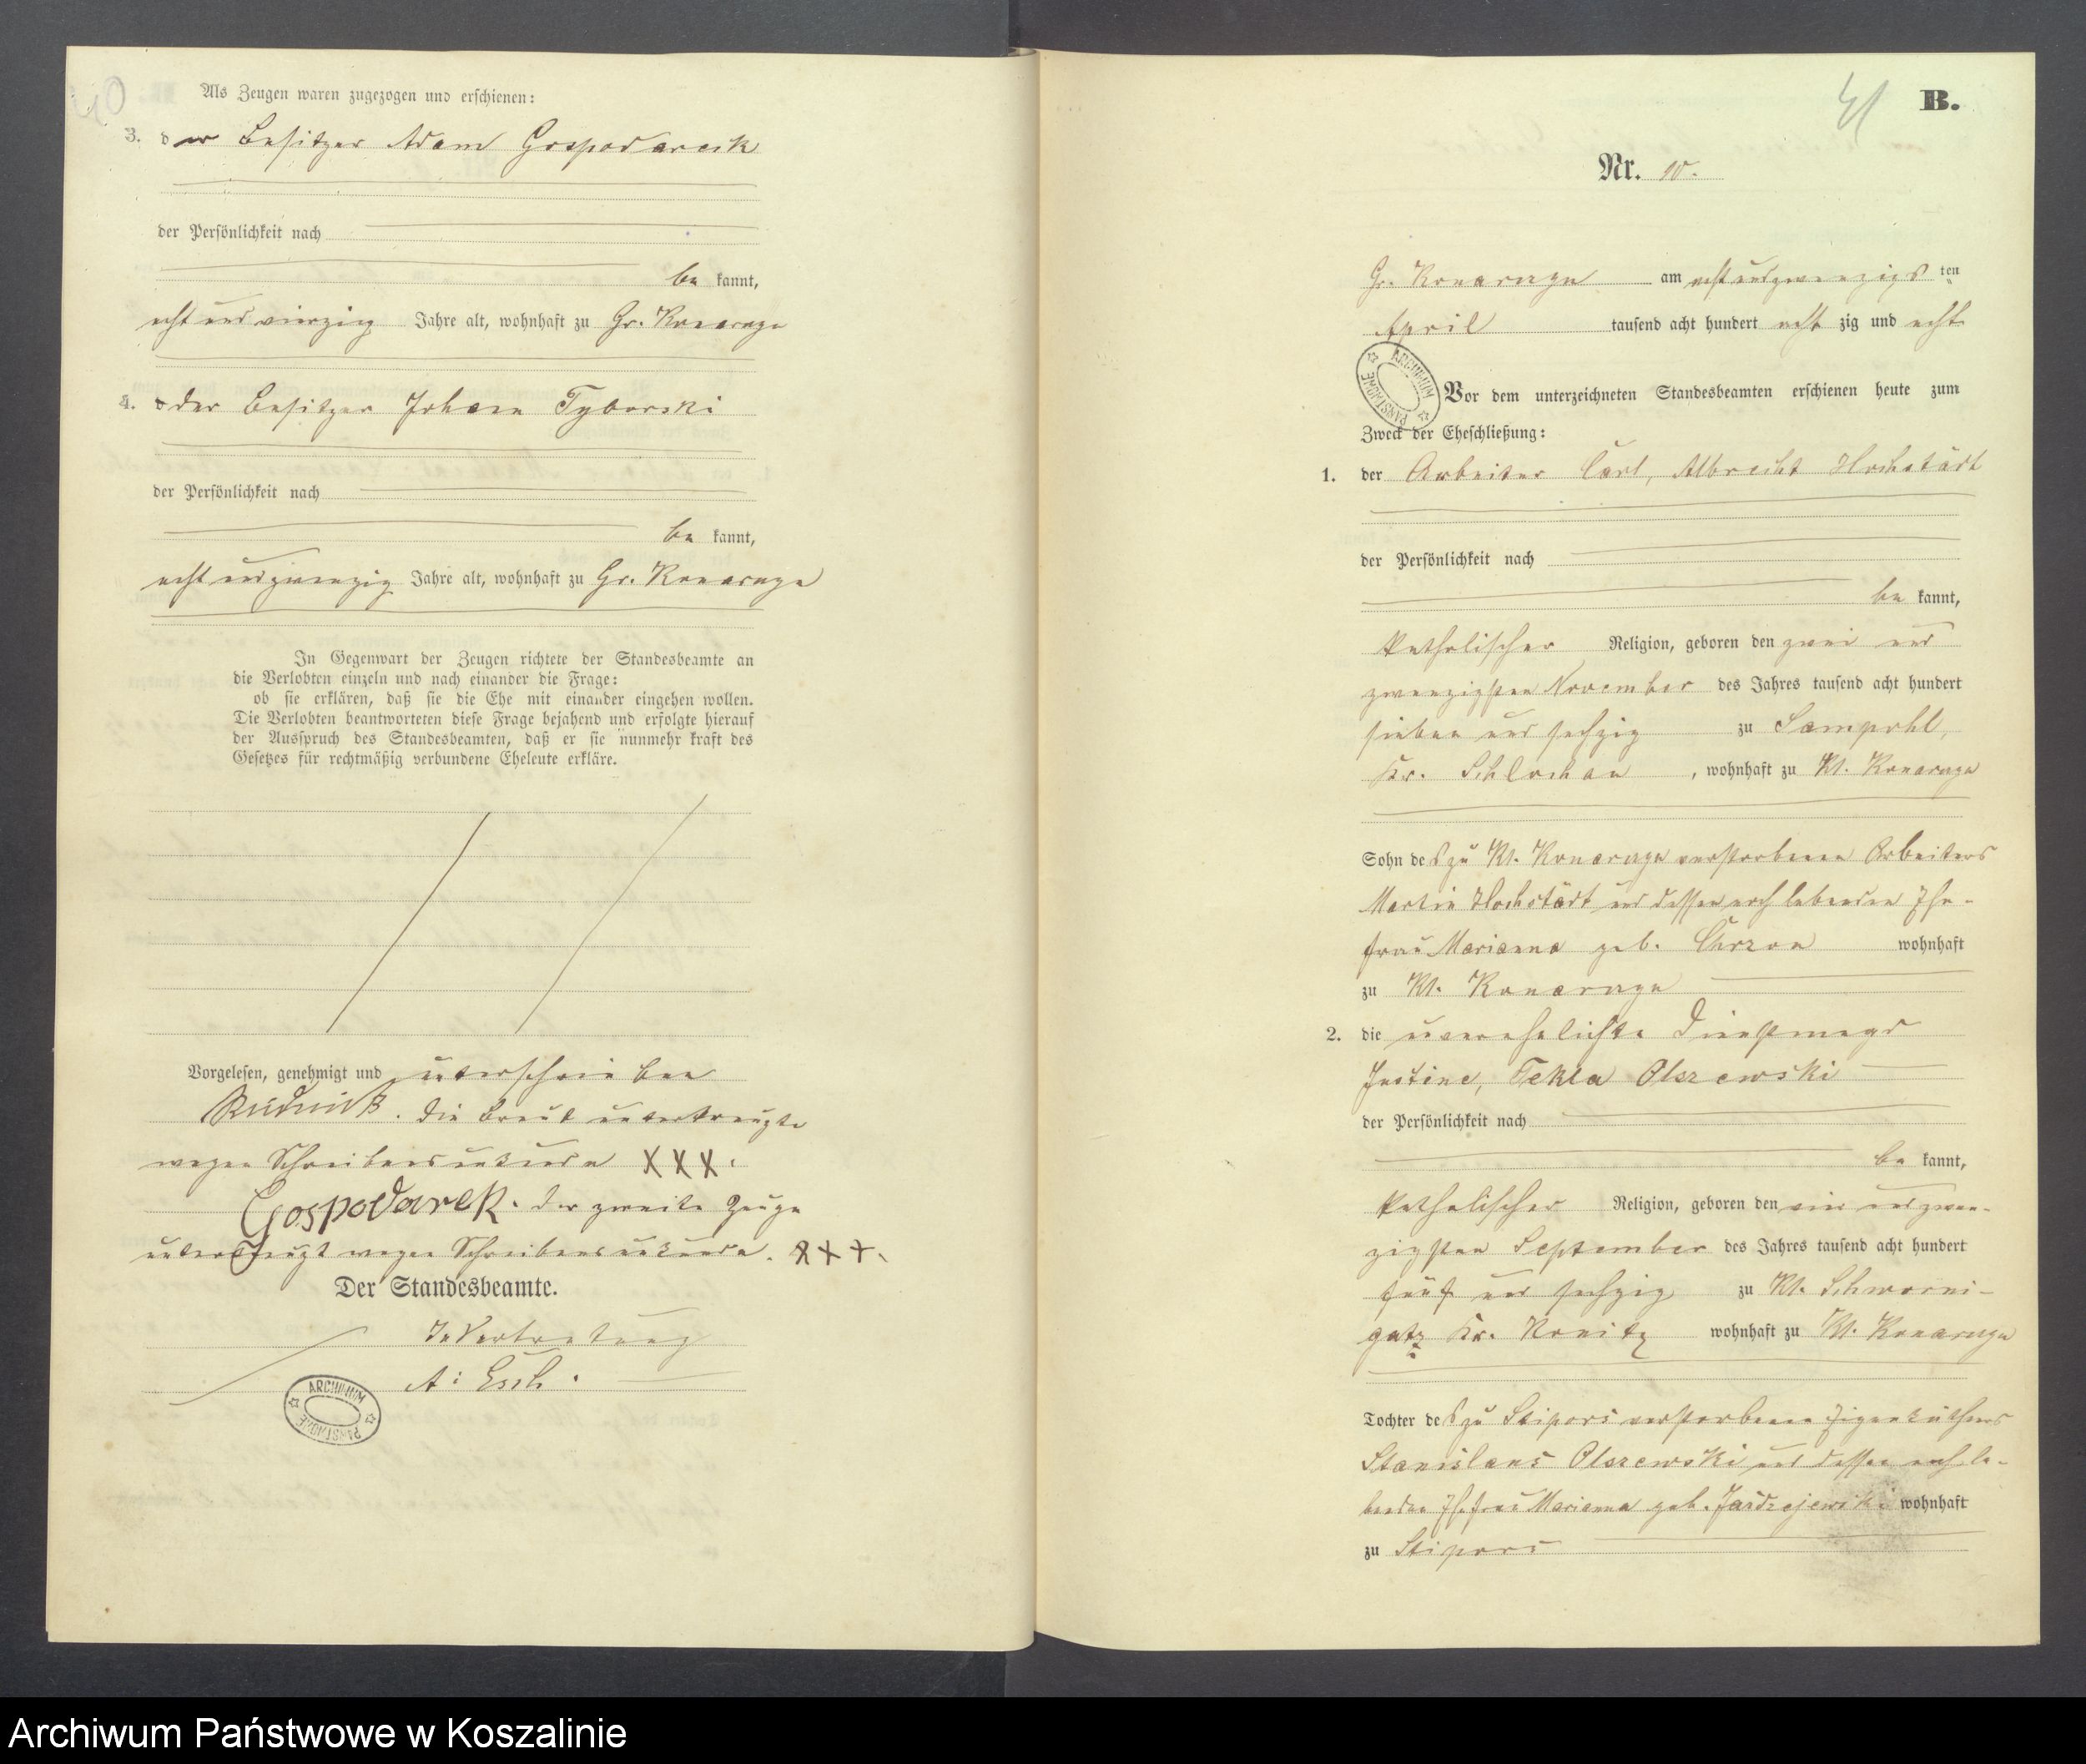 Als Zeugen waren zugezogen und erschienen:
3. der Besitzer Adam Gospodarek
der Persönlichkeit nach
be kannt,
acht und vierzig Jahre alt, wohnhaft zu Gr. Konarczyn
4. der Besitzer Johann Tyborski
der Persönlichkeit nach
be kannt,
acht und zwanzig Jahre alt, wohnhaft zu Gr. Konarczyn
In Gegenwart der Zeugen richtete der Standesbeamte an
die Verlobten einzeln und nach einander die Frage:
ob sie erklären, daß sie die Ehe mit einander eingehen wollen.
Die Verlobten beantworteten diese Frage bejahend und erfolgte hierauf
der Ausspruch des Standesbeamten, daß er sie nunmehr kraft des
Gesetzes für rechtmäßig verbundene Eheleute erkläre.
Vorgelesen, genehmigt und unterschrieben
Die Braut unterkreuzte
wegen Schreibensunkunde XXX.
Gospodarek. Der zweite Zeuge
unterkreuzt wegen Schreibensunkunde. XXX.
Der Standesbeamte.
In Vertretung
A: Esch.
ARCHIWUM PAŃSTWOWE
41 B.
Nr. 10.
Gr. Konarczyn am acht und zwanzigs ten
April tausend acht hundert acht zig und acht
ARCHIWUM PAŃSTWOWE
Vor dem unterzeichneten Standesbeamten erschienen heute zum
Zweck der Eheschließung:
1. der Arbeiter Carl, Albrecht Hochstädt
der Persönlichkeit nach
be kannt,
katholischer Religion, geboren den zwei und
zwanzigsten November des Jahres tausend acht hundert
sieben und sechzig zu Sampohl,
Kr. Schlochau, wohnhaft zu Kl. Konarczyn
Sohn des zu Kl. Konarczyn verstorbenen Arbeiters
Martin Hochstädt und dessen noch lebenden Ehe-
frau Marianna geb. Chrzon wohnhaft
zu Kl. Konarczyn
2. die unverehelichte Dienstmagd
Justine, Tekla Olszewski
der Persönlichkeit nach
be kannt,
katholischer Religion, geboren den ein und zwan-
zigsten September des Jahres tausend acht hundert
fünf und sechzig zu Kl. Schworni-
gatz Kr. Konitz wohnhaft zu Kl. Konarczyn
Tochter des zu Stipors verstorbenen Eigenkäthners
Stanislaus Olszewski und dessen noch le-
benden Ehefrau Marianna geb. wohnhaft
zu Stipors
Archiwum Państwowe w Koszalinie